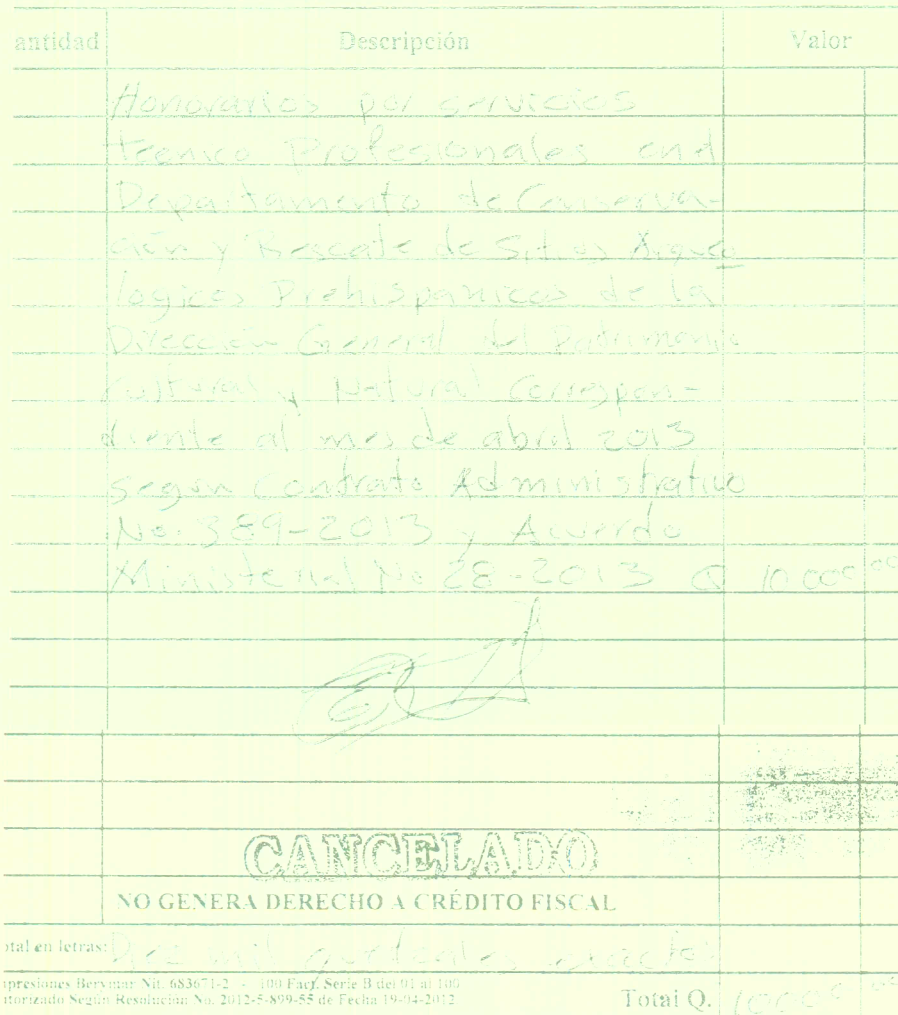 antidad Descripción Valor
Honorarios por servicios
tecnico Profesionales end
Departamento de Conserva-
ción y Rescate de Sitios Arqueo
logicos Prehispanicos de la
Dirección General del Patrimonio
Cultural y Natural Correspon-
diente al mes de abril 2013
según Contrato Administrativo
No. 389-2013 y Acuerdo
Ministerial No 28-2013 Q 10 000 00
CANCELADO
NO GENERA DERECHO A CRÉDITO FISCAL
otal en letras: Diez mil quetzales exactos
mpresiones Berymar Nit. 683671-2 - 100 Fact. Serie B del 01 al 100
utorizado Según Resolución No. 2012-5-899-55 de Fecha 19-04-2012
Total Q. 10000 00